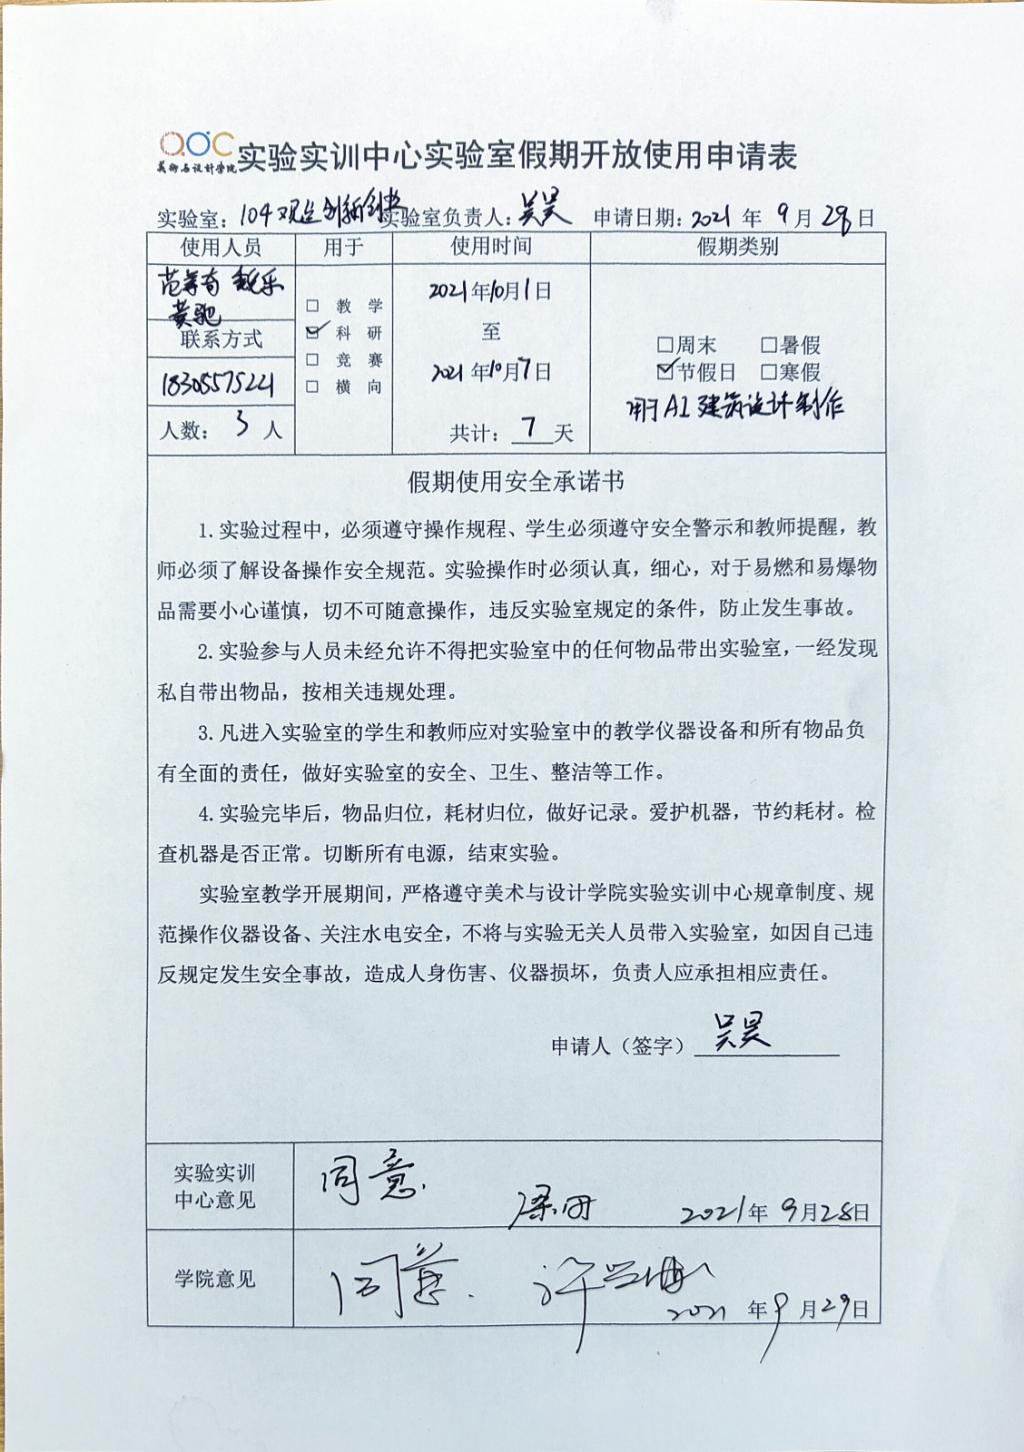 QOC
美术与设计学院
实验实训中心实验室假期开放使用申请表
实验室：104 实验室负责人：吴昊 申请日期：2021年9月28日
使用人员 用于 使用时间 假期类别
黄驰
联系方式
18305575221
人数：3人
☐ 教学
☑ 科研
☐ 竞赛
☐ 横向
2021年10月1日
至
2021年10月7日
共计：7天
☐周末 ☐暑假
☑节假日 ☐寒假
用于AI建筑设计制作
假期使用安全承诺书
1.实验过程中，必须遵守操作规程、学生必须遵守安全警示和教师提醒，教
师必须了解设备操作安全规范。实验操作时必须认真，细心，对于易燃和易爆物
品需要小心谨慎，切不可随意操作，违反实验室规定的条件，防止发生事故。
2.实验参与人员未经允许不得把实验室中的任何物品带出实验室，一经发现
私自带出物品，按相关违规处理。
3.凡进入实验室的学生和教师应对实验室中的教学仪器设备和所有物品负
有全面的责任，做好实验室的安全、卫生、整洁等工作。
4.实验完毕后，物品归位，耗材归位，做好记录。爱护机器，节约耗材。检
查机器是否正常。切断所有电源，结束实验。
实验室教学开展期间，严格遵守美术与设计学院实验实训中心规章制度、规
范操作仪器设备、关注水电安全，不将与实验无关人员带入实验室，如因自己违
反规定发生安全事故，造成人身伤害、仪器损坏，负责人应承担相应责任。
申请人（签字）吴昊
实验实训
中心意见
同意.
2021年9月28日
学院意见
同意.
2021年9月29日